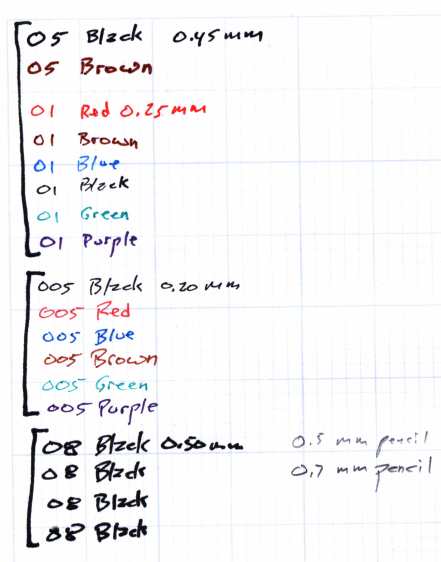 05 Black 0.45 mm
05 Brown
01 Red 0.25 mm
01 Brown
01 Blue
01 Black
01 Green
01 Purple
005 Black 0.20 mm
005 Red
005 Blue
005 Brown
005 Green
005 Purple
08 Black 0.50 mm 0.5 mm pencil
08 Black 0.7 mm pencil
08 Black
08 Black